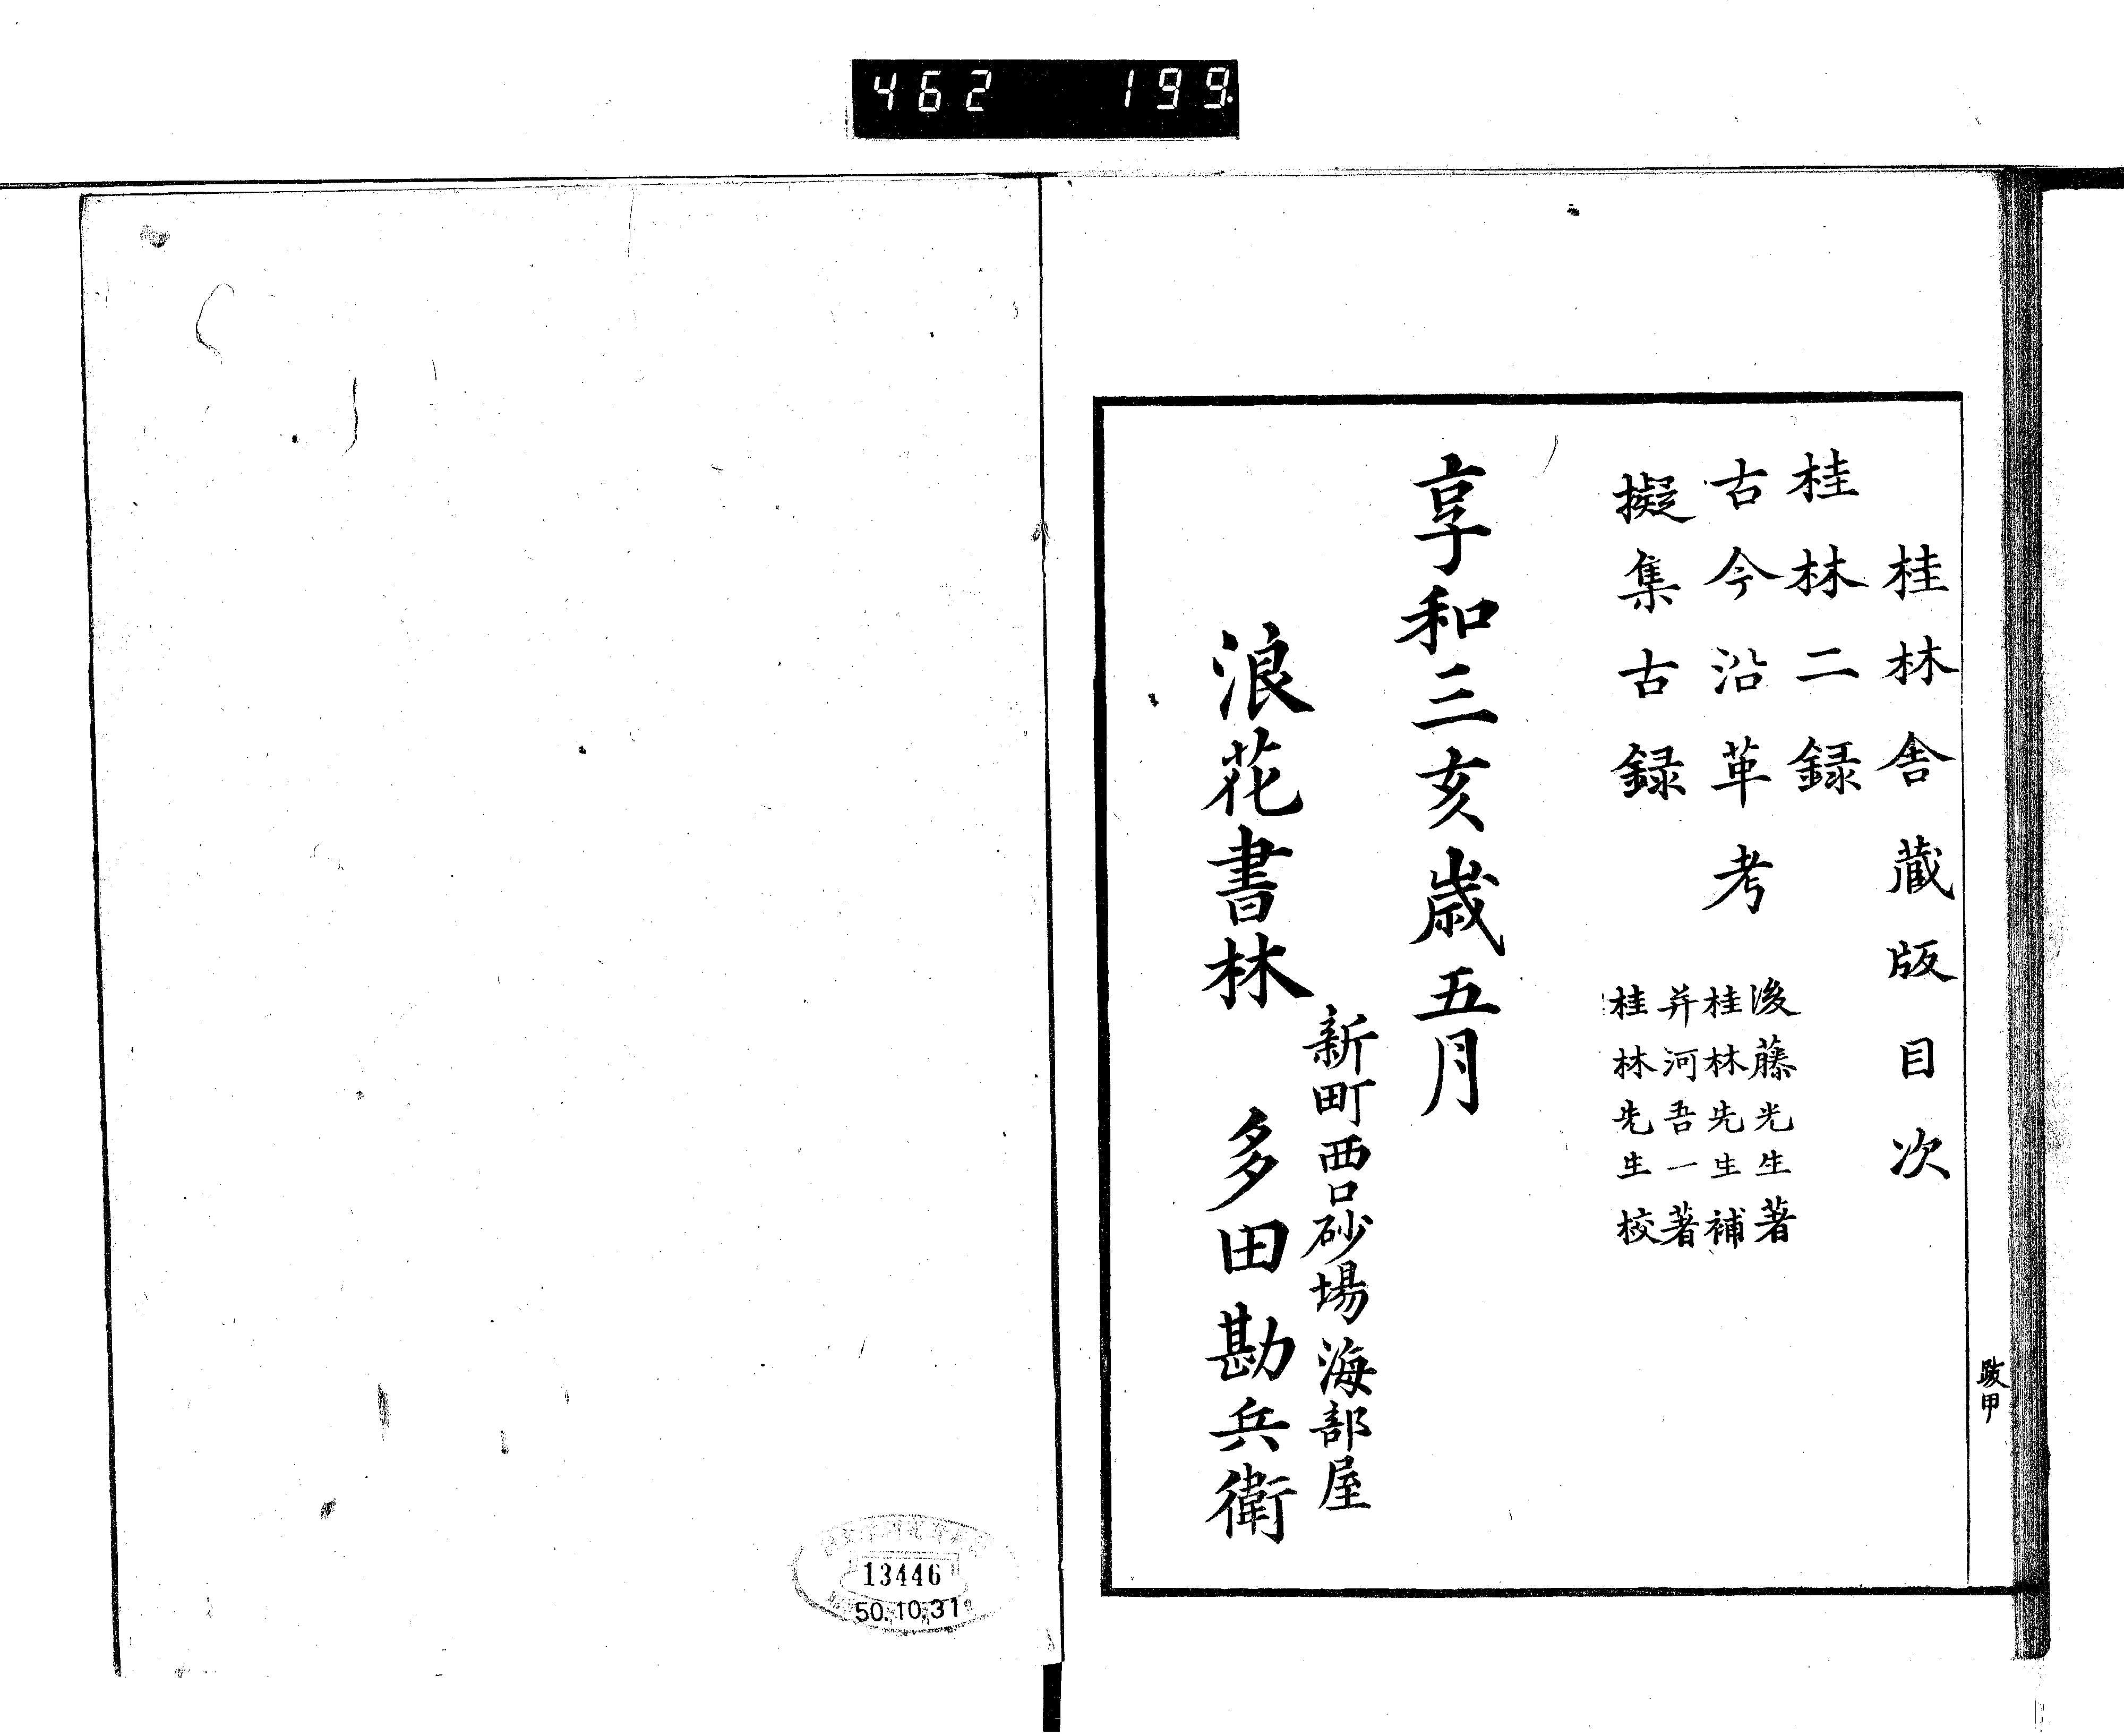 462 199.
桂林舎蔵版目次
桂林二録
古今沿革考
後藤先生著
桂林先生補
擬集古録
并河吾一著
桂林先生校
享和三亥歳五月
新町西口砂場海部屋
浪花書林 多田勘兵衛
跋甲
13446
50.10.31